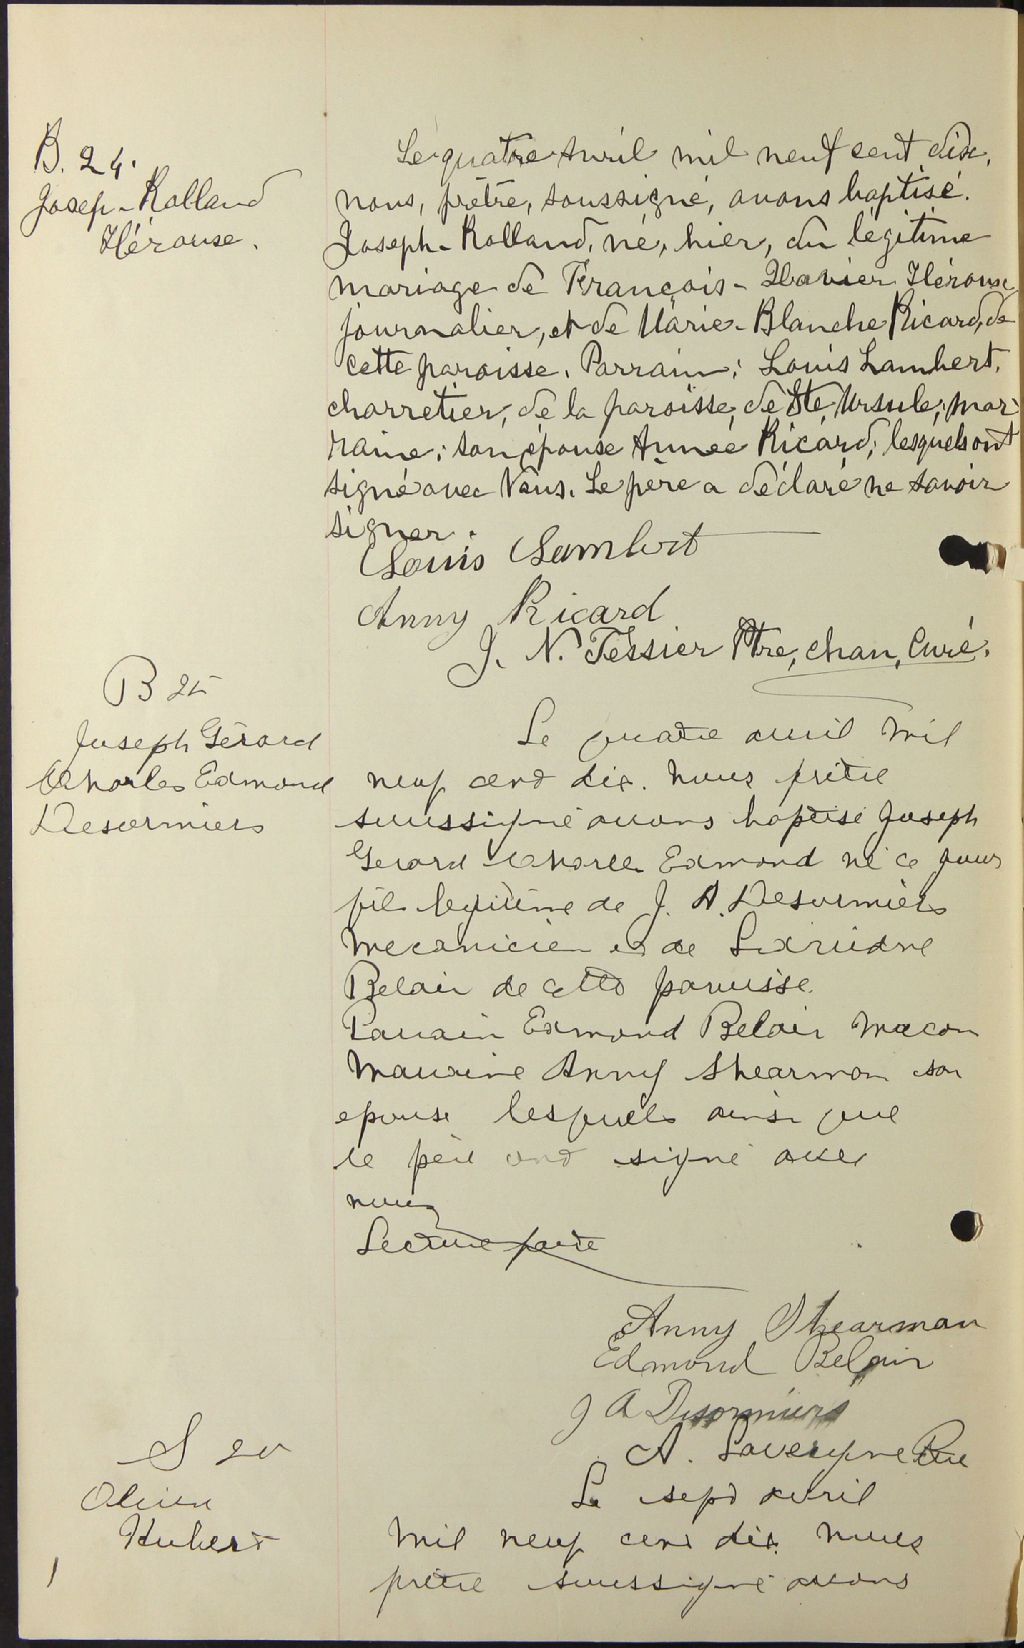 B. 24.
Josep-Rolland
Hérouse.
Le quatre Avril mil neuf cent dix,
nous, prêtre, soussigné, avons baptisé.
Joseph-Rolland, né, hier, du légitime
mariage de François-Xavier Hérouse
journalier, et de Marie-Blanche Ricard, de
cette paroisse. Parrain; Louis Lambert,
charretier, de la paroisse de Ste Ursule; mar-
raine; son épouse Annee Ricard; lesquels ont
signé avec Nous. Le père a déclaré ne savoir
signer.
Louis Lambert
Anny Ricard
J. N. Tessier Ptre, chan, Curé.
B 25
Joseph Gérard
Charles Edmond
Desormiers
Le quatre avril mil
neuf cent dix. nous prêtre
soussigné avons baptisé Joseph
Gerard Charles Edmond né ce jour
fils legitime de J. A. Desormiers
mecanicien et de
Belair de cette paroisse.
Parrain Edmond Belair macon
Marraine Anny Shearman son
epouse lesquels ainsi que
le père ont signé avec
nous
Lecture faite
Anny Shearman
Edmond Belair
J A Desormiers
A. Lavergne Ptre
S 20
Olivier
Hubert
Le sept avril
mil neuf cent dix nous
prêtre soussigné avons